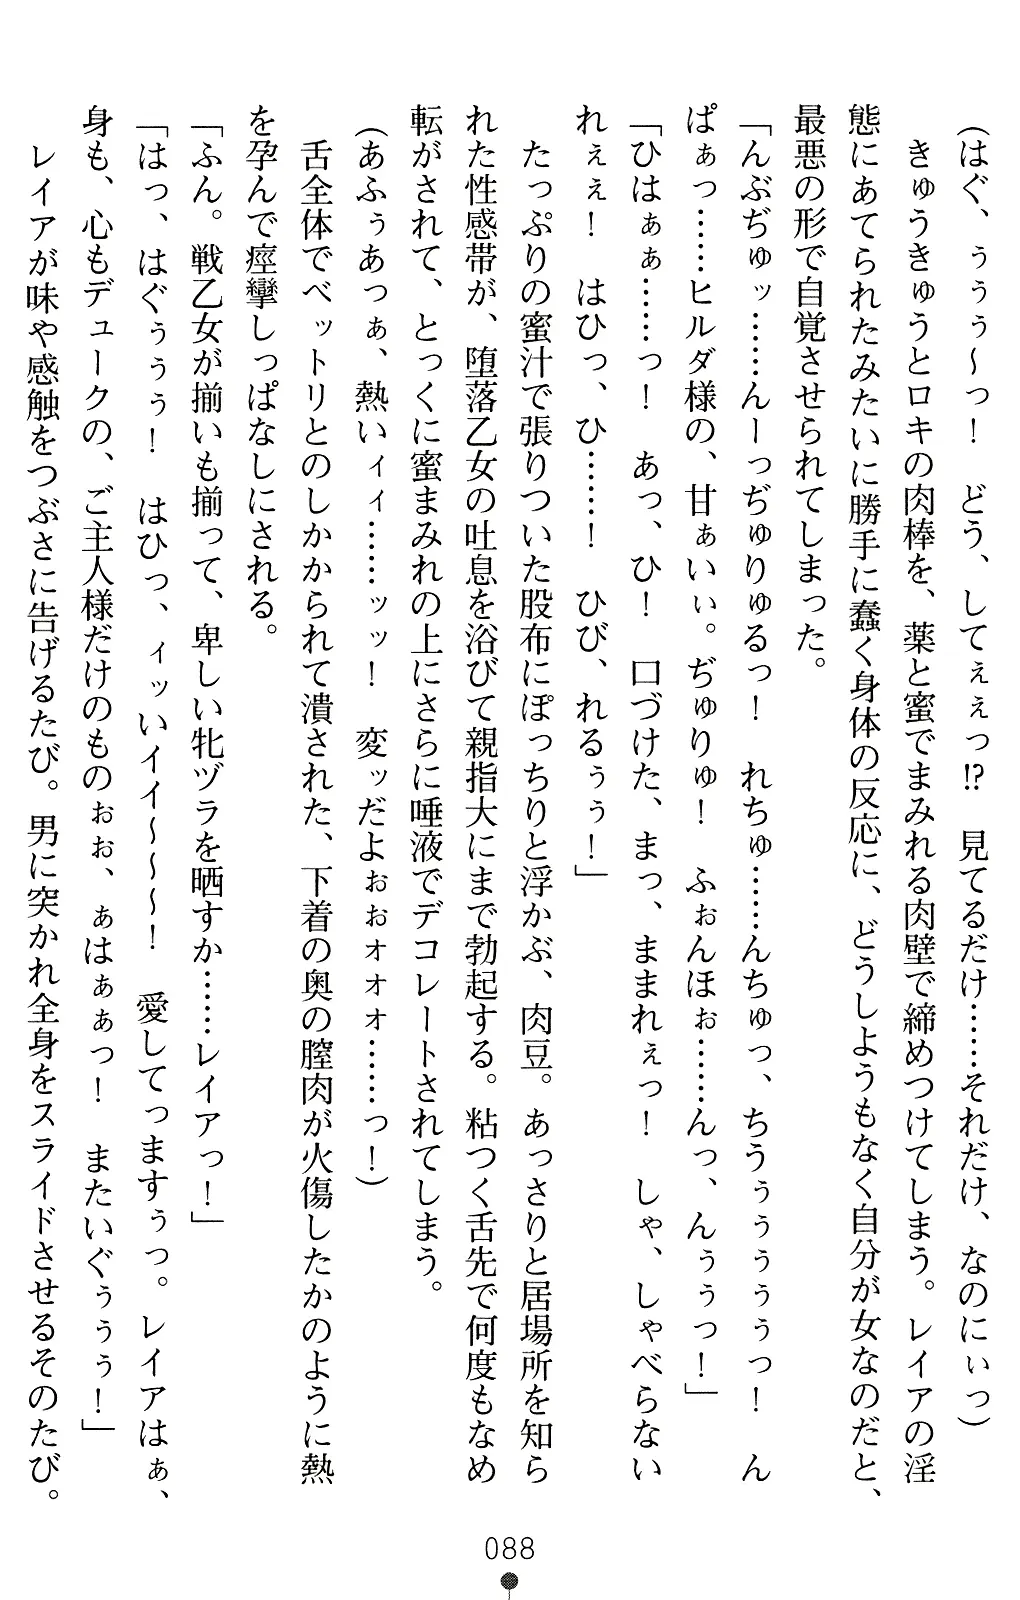 (はぐ、ぅぅぅ～っ！　どう、してぇぇっ!?　見てるだけ……それだけ、なのにぃっ)
　きゅうきゅうとロキの肉棒を、薬と蜜でまみれる肉壁で締めつけてしまう。レイアの淫
態にあてられたみたいに勝手に蠢く身体の反応に、どうしようもなく自分が女なのだと、
最悪の形で自覚させられてしまった。
「んぶぢゅッ……んーっぢゅりゅるっ！　れちゅ……んちゅっ、ちうぅぅぅぅぅっ！　ん
ぱぁっ……ヒルダ様の、甘ぁいぃ。ぢゅりゅ！　ふぉんほぉ……んっ、んぅぅっ！」
「ひはぁぁ……っ！　あっ、ひ！　口づけた、まっ、ままれぇっ！　しゃ、しゃべらない
れぇぇ！　はひっ、ひ……！　ひび、れるぅぅ！」
　たっぷりの蜜汁で張りついた股布にぽっちりと浮かぶ、肉豆。あっさりと居場所を知ら
れた性感帯が、堕落乙女の吐息を浴びて親指大にまで勃起する。粘つく舌先で何度もなめ
転がされて、とっくに蜜まみれの上にさらに唾液でデコレートされてしまう。
(あふぅあっぁ、熱いィィ……ッッ！　変ッだよぉぉォォォ……っ！)
　舌全体でベットリとのしかかられて潰された、下着の奥の膣肉が火傷したかのように熱
を孕んで痙攣しっぱなしにされる。
「ふん。戦乙女が揃いも揃って、卑しい牝ヅラを晒すか……レイアっ！」
「はっ、はぐぅぅぅ！　はひっ、ィッいイイ～～～！　愛してっますぅっ。レイアはぁ、
身も、心もデュークの、ご主人様だけのものぉぉ、ぁはぁぁっ！　またいぐぅぅぅ！」
　レイアが味や感触をつぶさに告げるたび。男に突かれ全身をスライドさせるそのたび。
088